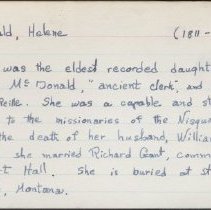 ald, Helene (1811-
was the eldest recorded daught
McDonald, "ancient clerk", and
Reille. She was a capable and st
to the missionaries of the Nisqu
the death of her husband, William
she married Richard Grant, comm
t Hall. She is buried at St
, Montana.